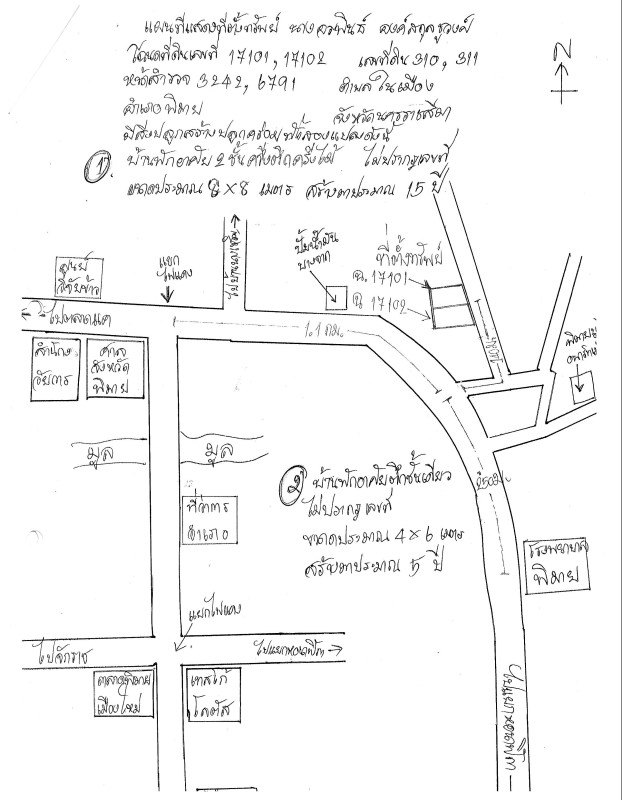 แผนที่แสดงที่ตั้งทรัพย์ นาง
โฉนดที่ดินเลขที่ 17101, 17102 เลขที่ดิน 310, 311
หน้าสำรวจ 3242, 6791 ตำบล ในเมือง
อำเภอ พิมาย จังหวัดนครราชสีมา
มีสิ่งปลูกสร้างปลูกคร่อมที่ทั้งสองแปลงดังนี้
① บ้านพักอาศัย 2 ชั้นครึ่งตึกครึ่งไม้ ไม่ปรากฏเลขที่
ขนาดประมาณ 8 × 8 เมตร สร้างมาประมาณ 15 ปี
N
ปั๊มน้ำมัน
บางจาก
ที่ตั้งทรัพย์
ฉ. 17101
ฉ 17102
แยก
ไฟแดง
ศูนย์
ไปตลาดแค
1.1 กม.
สำนักงาน
อัยการ
ศาล
จังหวัด
พิมาย
มูล
มูล
② บ้านพักอาศัยตึกชั้นเดียว
ไม่ปรากฏเลขที่
ขนาดประมาณ 4 × 6 เมตร
สร้างมาประมาณ 5 ปี
250ม.
ที่ว่าการ
อำเภอ
โรงพยาบาล
พิมาย
แยกไฟแดง
ไปจักราช
ตลาดพิมาย
เมืองใหม่
เทสโก้
โลตัส